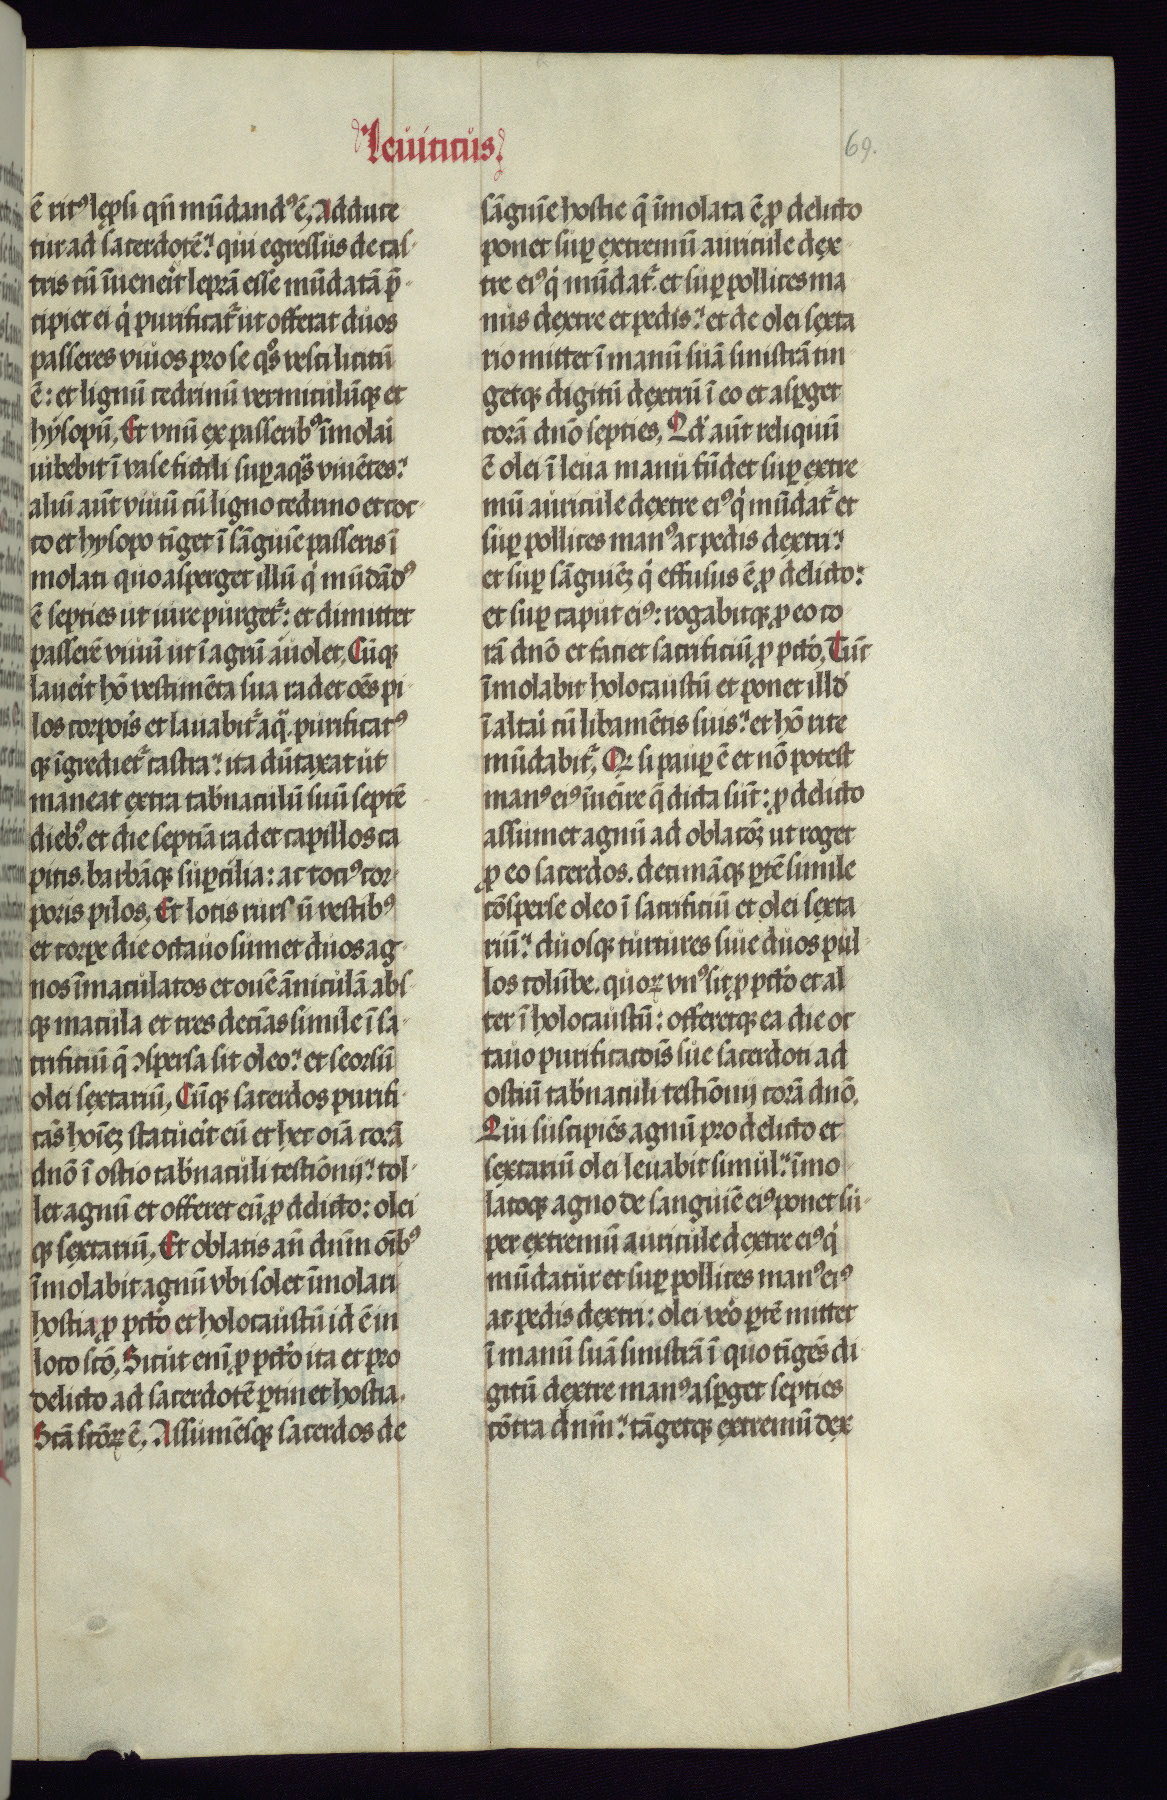 Leuiticus.
69.
ē rit⁹ lep̄si qn̄ mūdand⁹ ē, Adduce
tur ad sacerdotē: qui egressus de cas-
tris cū īuenerit leprā esse mūdatā p̄-
cipiet ei q̇ purificat᷑ ut offerat duos
passeres viuos pro se qͦs vesci licitū
ē: et lignū cedrinū vermiculūqꝫ et
hysopū, Et vnū ex passerib⁹ īmolaĩ
iubebit ī vase fictili suꝑ aqͣs viuētes:
aliū aūt viuū cū ligno cedrino et coc-
co et hysopo tīget ī sāguīe passeris ī
molati quo asperget illū q̇ mūdād⁹
ē septies ut iure purget᷑: et dimittet
passerē viuū ut ī agrū auolet, Cūqꝫ
lauerit hō vestimēta sua radet oēs pi-
los corpoĩs et lauabit᷑ aqͣ. purificat⁹
qꝫ īgrediet᷑ castra: ita dūtaxat ut
maneat extra tab̄naculū suū septē
dieb⁹. et die septīa radet capillos ca
pitis. barbāqꝫ suꝑcilia: ac toci⁹ cor-
poris pilos, Et lotis rursū vestib⁹
et corpe die octauo sumet duos ag-
nos īmaculatos et ouē āniculā abs-
qꝫ macula et tres decīas simile ī sa-
crificiū q̄ ꝯspersa sit oleo: et seorsū
olei sextariū, Cūqꝫ sacerdos purifi-
cās hoīeꝫ statuerit eū et hec oīa corā
dn̄o ī ostio tab̄naculi testīonij: tol-
let agnū et offeret eū ꝓ delicto: olei
qꝫ sextariū, Et oblatis an̄ dn̄m oīb⁹
īmolabit agnū vbi solet īmolari
hostia ꝓ pctō et holocaustū id ē in
loco sctō, Sicut enī ꝓ pctō ita et pro
delicto ad sacerdotē ꝑtinet hostia.
Sctā sctōꝝ ē, Assumēsqꝫ sacerdos de
sāguīe hostie q̄ īmolata ē ꝓ delicto
ponet suꝑ extremū auricule dex-
tre ei⁹ q̇ mūdat᷑. et suꝑ pollices ma
nus dextre et pedis: et de olei sexta
rio mittet ī manū suā sinistrā tin
getqꝫ digitū dextrū ī eo et asꝑget
corā dn̄o septies, Qd̓ aūt reliquū
ē olei ī leua manu fūdet suꝑ extre
mū auricule dextre ei⁹ q̇ mūdat᷑ et
suꝑ pollices man⁹ ac pedis dextri:
et suꝑ sāguīeꝫ q̇ effusus ē ꝓ delicto:
et suꝑ caput ei⁹: rogabitqꝫ ꝓ eo co
rā dn̄o et faciet sacrificiū ꝓ pctō, Tūc
īmolabit holocaustū et ponet illd̓
ī altaĩ cū libamētis suis: et hō rite
mūdabit᷑, Qꝫ si pauꝑ ē et nō potest
man⁹ ei⁹ īuēire q̄ dicta sūt: ꝓ delicto
assumet agnū ad oblacōꝫ ut roget
ꝓ eo sacerdos. decimāqꝫ ꝑtē simile
cōsperse oleo ī sacrificiū et olei sexta
riū: duosqꝫ turtures siue duos pul-
los colūbe. quoꝝ vn⁹ sit ꝓ pctō et al
ter ī holocaustū: offeretqꝫ ea die oc
tauo purificacōis sue sacerdoti ad
ostiū tab̄naculi testīonij corā dn̄o.
Qui suscipiēs agnū pro delicto et
sextariū olei leuabit simul: īmo-
latoqꝫ agno de sanguīe ei⁹ ponet su-
per extremū auricule dextre ei⁹ q̇
mūdatur et suꝑ pollices man⁹ ei⁹
ac pedis dextri: olei ṽo ꝑtē mittet
ī manū suā sinistrā ī quo tīgēs di
gitū dextre man⁹ asꝑget septies
cōtra dn̄m: tāgetqꝫ extremū dex